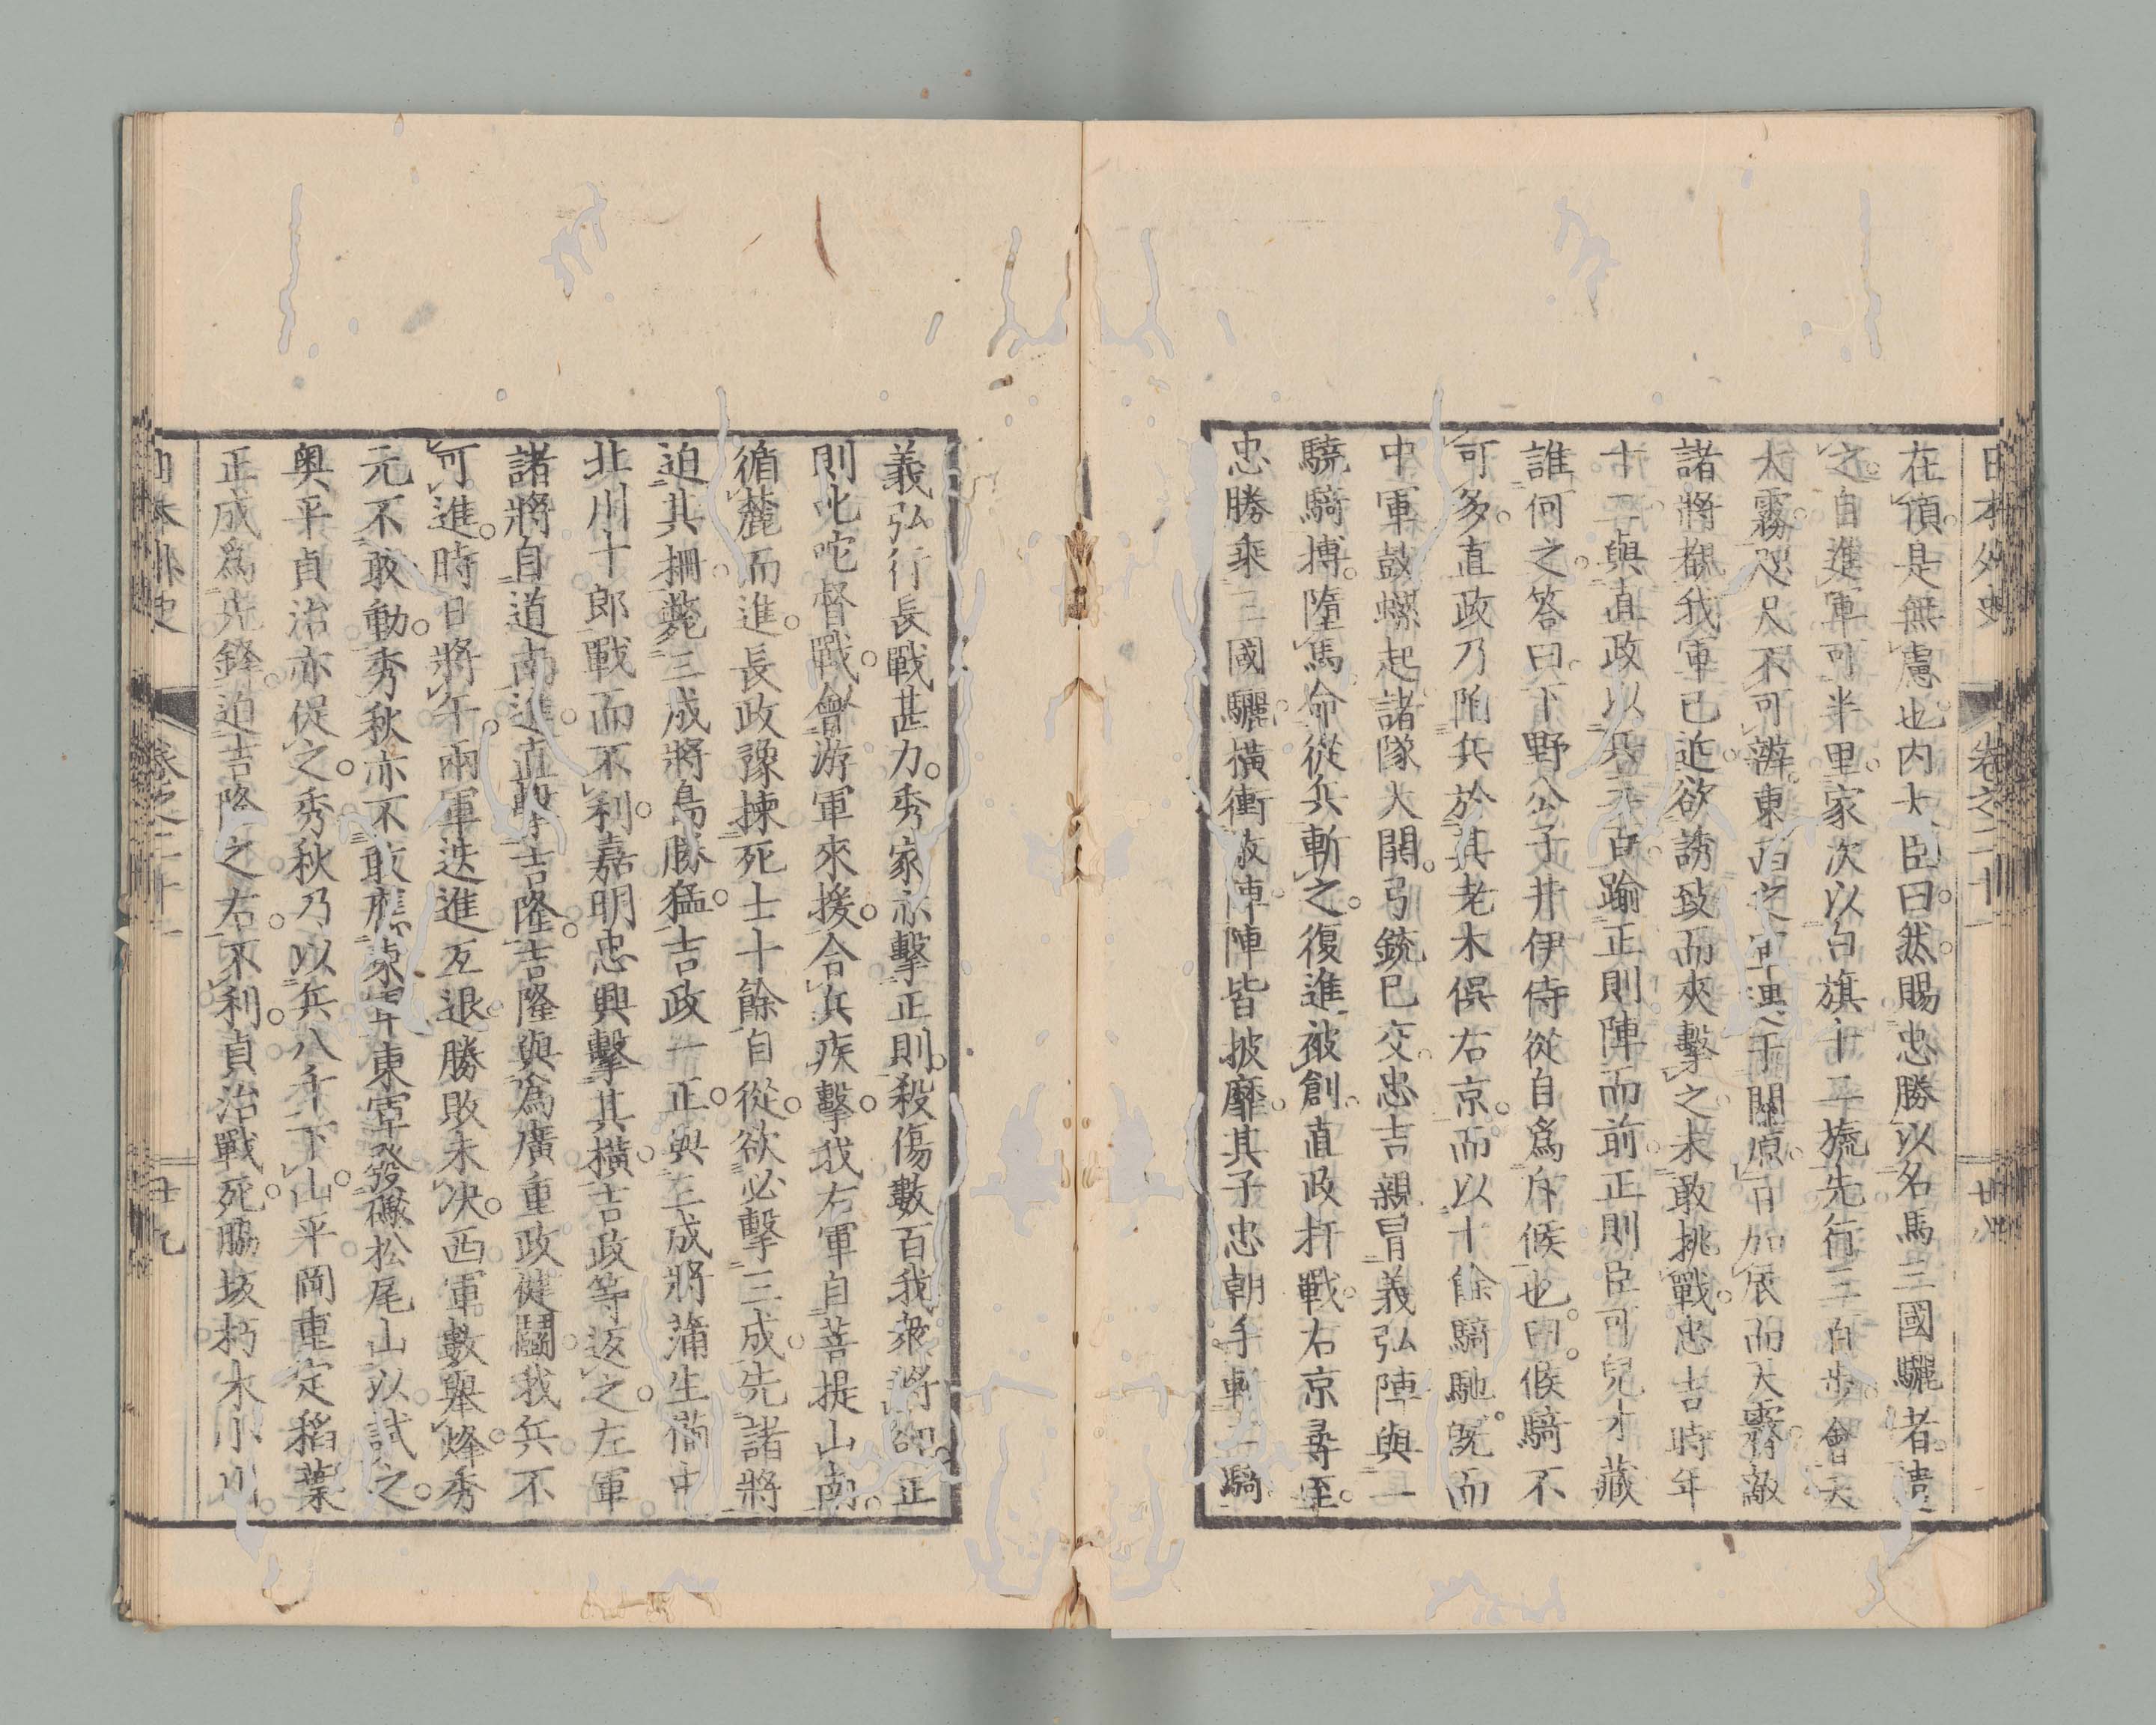 日本外史 卷之二十一
在頂是無慮也内大臣曰然賜忠勝以名馬三國驪者遣
之自進軍可半里家次以白旗十二旒先行三百步會天
大霧咫尺不可辨東西之軍遇于關原日加辰而天霽敵
諸將觀我軍已近欲誘致而夾擊之未敢挑戰忠吉時年
十二與直政以兵三百踰正則陣而前正則臣可兒才藏
誰何之答曰下野公子井伊侍從自爲斥候也曰候騎不
可多直政乃陷兵於其老木俣右京而以十餘騎馳既而
中軍鼓螺起諸隊大鬨弓銃已交忠吉親冒義弘陣與一
驍騎搏墮馬命從兵斬之復進被創直政扞戰右京尋至
忠勝乘三國驪橫衝敵陣陣皆披靡其子忠朝手斬二騎
義弘行長戰甚力秀家亦擊正則殺傷數百我衆將卻正
則叱咤督戰會游軍來援合兵疾擊我右軍自菩提山南
循麓而進長政豫揀死士十餘自從欲必擊三成先諸將
迫其柵斃三成將島勝猛吉政一正與三成將蒲生
北川十郎戰而不利嘉明忠興擊其橫吉政等返之左軍
諸將自道南進直擊吉隆吉隆與爲廣重政健鬬我兵不
可進時日將午兩軍迭進互退勝敗未决西軍數舉烽秀
元不敢動秀秋亦不敢應東軍東軍發礮松尾山以試之
奥平貞治亦促之秀秋乃以兵八千下山平岡重定稻葉
正成爲先鋒迫吉隆之右不利貞治戰死脇坂朽木小川
日本外史 卷之二十一 廿九